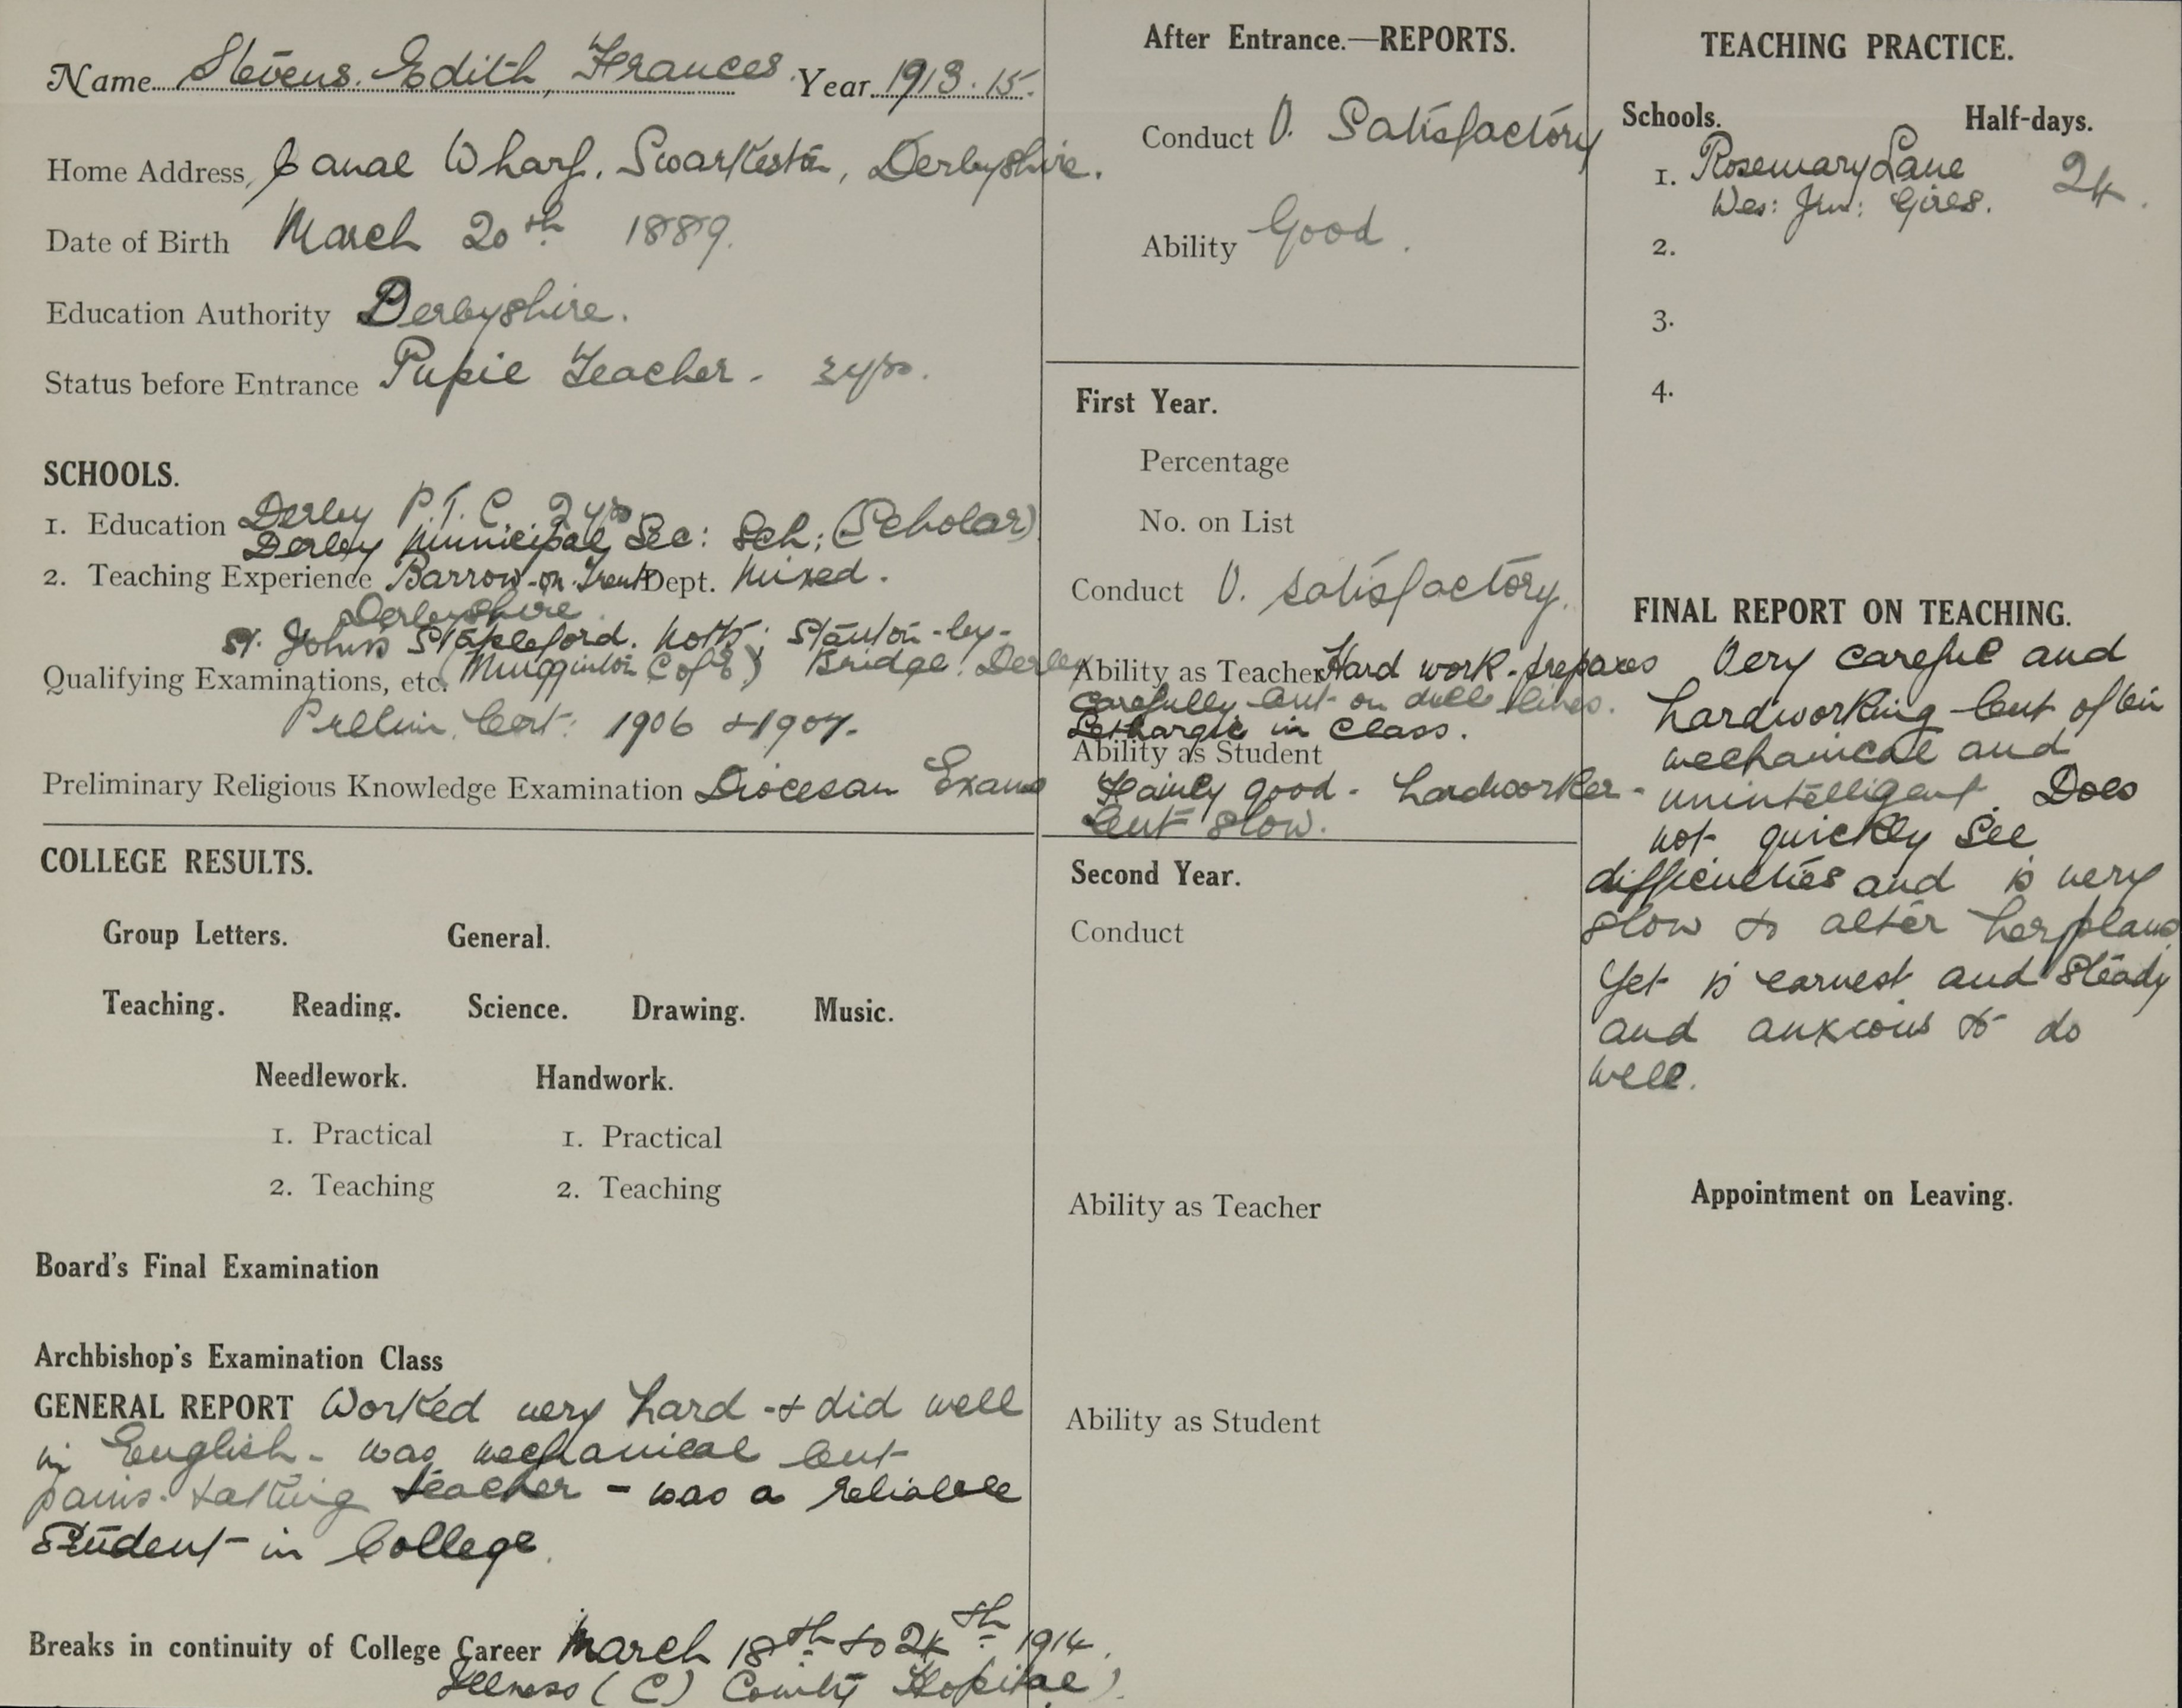 Name Stevens. Edith, Frances. Year 1913.15.
Home Address, Canal Wharf, Swarkeston, Derbyshire.
Date of Birth March 20th 1889.
Education Authority Derbyshire.
Status before Entrance Pupil Teacher - 3 yrs.
SCHOOLS.
Derby P.T.C. 2 yrs
1. Education Derby Municipal Sec: Sch: (Scholar)
2. Teaching Experience Barrow-on-Trent Dept. Mixed.
Derbyshire
St. John's Stapleford. Notts; Stanton-by-
(Mugginton C of E) Bridge. Derby
Qualifying Examinations, etc.
Prelim. Cert: 1906 & 1907.
Preliminary Religious Knowledge Examination Diocesan Exams
COLLEGE RESULTS.
Group Letters. General.
Teaching. Reading. Science. Drawing. Music.
Needlework. Handwork.
1. Practical 1. Practical
2. Teaching 2. Teaching
Board's Final Examination
Archbishop's Examination Class
GENERAL REPORT Worked very hard - & did well
in English - was mechanical but
pains-taking teacher - was a reliable
Student in College.
Breaks in continuity of College Career March 18th to 24th 1914.
Illness (C) County Hopital).
After Entrance.—REPORTS.
Conduct V. Satisfactory
Ability Good.
First Year.
Percentage
No. on List
Conduct V. satisfactory.
Ability as Teacher Hard work - prepares
carefully but on dull lines.
Lethargic in Class.
Ability as Student
Fairly good - hardworker -
but slow.
Second Year.
Conduct
Ability as Teacher
Ability as Student
TEACHING PRACTICE.
Schools. Half-days.
1. Rosemary Lane 24.
Wes: Jun: Girls.
2.
3.
4.
FINAL REPORT ON TEACHING.
Very careful and
hardworking but often
mechanical and
unintelligent. Does
not quickly see
difficulties and is very
slow to alter her plans
Yet is earnest and steady
and anxious to do
well.
Appointment on Leaving.